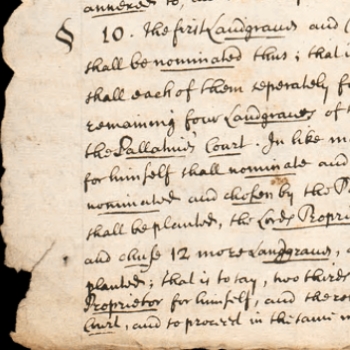 annexed to, an
§ 10. The first Landgraves and C
shall be nominated thus; that i
shall each of them seperately f
remaining four Landgraves of t
the Pallatin's Court. In like m
for himself shall nominate and
nominated and chosen by the P
shall be planted, the Lords Proprie
and chuse 12 more Landgraves, a
planted; that is to say, two thirds
Proprietor for himself, and the re
Court, and to proceed in the same m